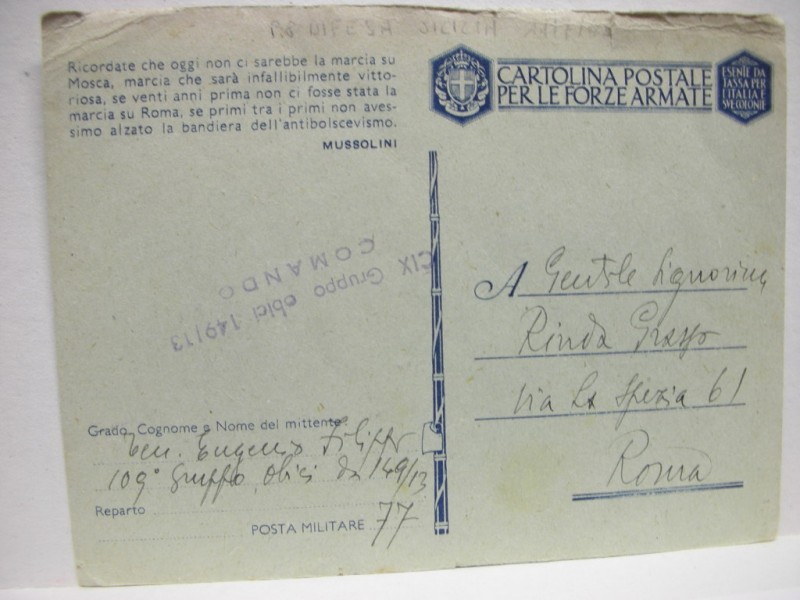 Ricordate che oggi non ci sarebbe la marcia su
Mosca, marcia che sarà infallibilmente vitto-
riosa, se venti anni prima non ci fosse stata la
marcia su Roma, se primi tra i primi non aves-
simo alzato la bandiera dell'antibolscevismo.
MUSSOLINI
CARTOLINA POSTALE
PER LE FORZE ARMATE
ESENTE DA
TASSA PER
L'ITALIA E
SVE COLONIE
CIX Gruppo obici 149/13
COMANDO
A Gentile Signorina
Rinda Grasso
Via La Spezia 61
Roma
Grado, Cognome e Nome del mittente
Ten. Eugenio Filippo
109° Gruppo Obici da 149/13
Reparto
POSTA MILITARE 77